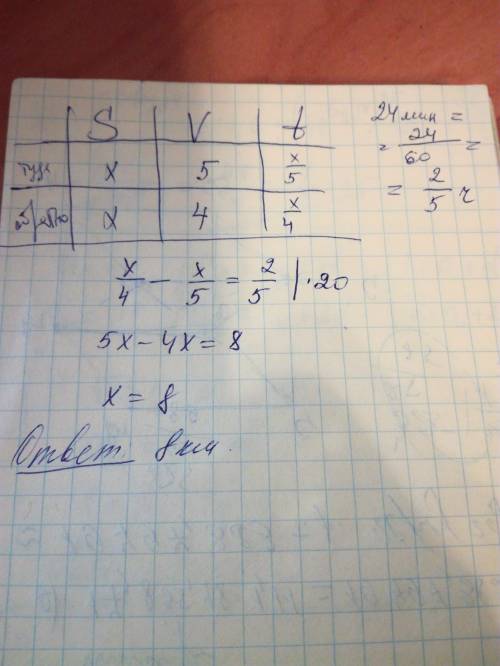 S V t
туда x 5 x/5
обратно x 4 x/4
24 мин =
= 24/60 =
= 2/5 ч
x/4 - x/5 = 2/5 |·20
5x - 4x = 8
x = 8
Ответ 8 км.